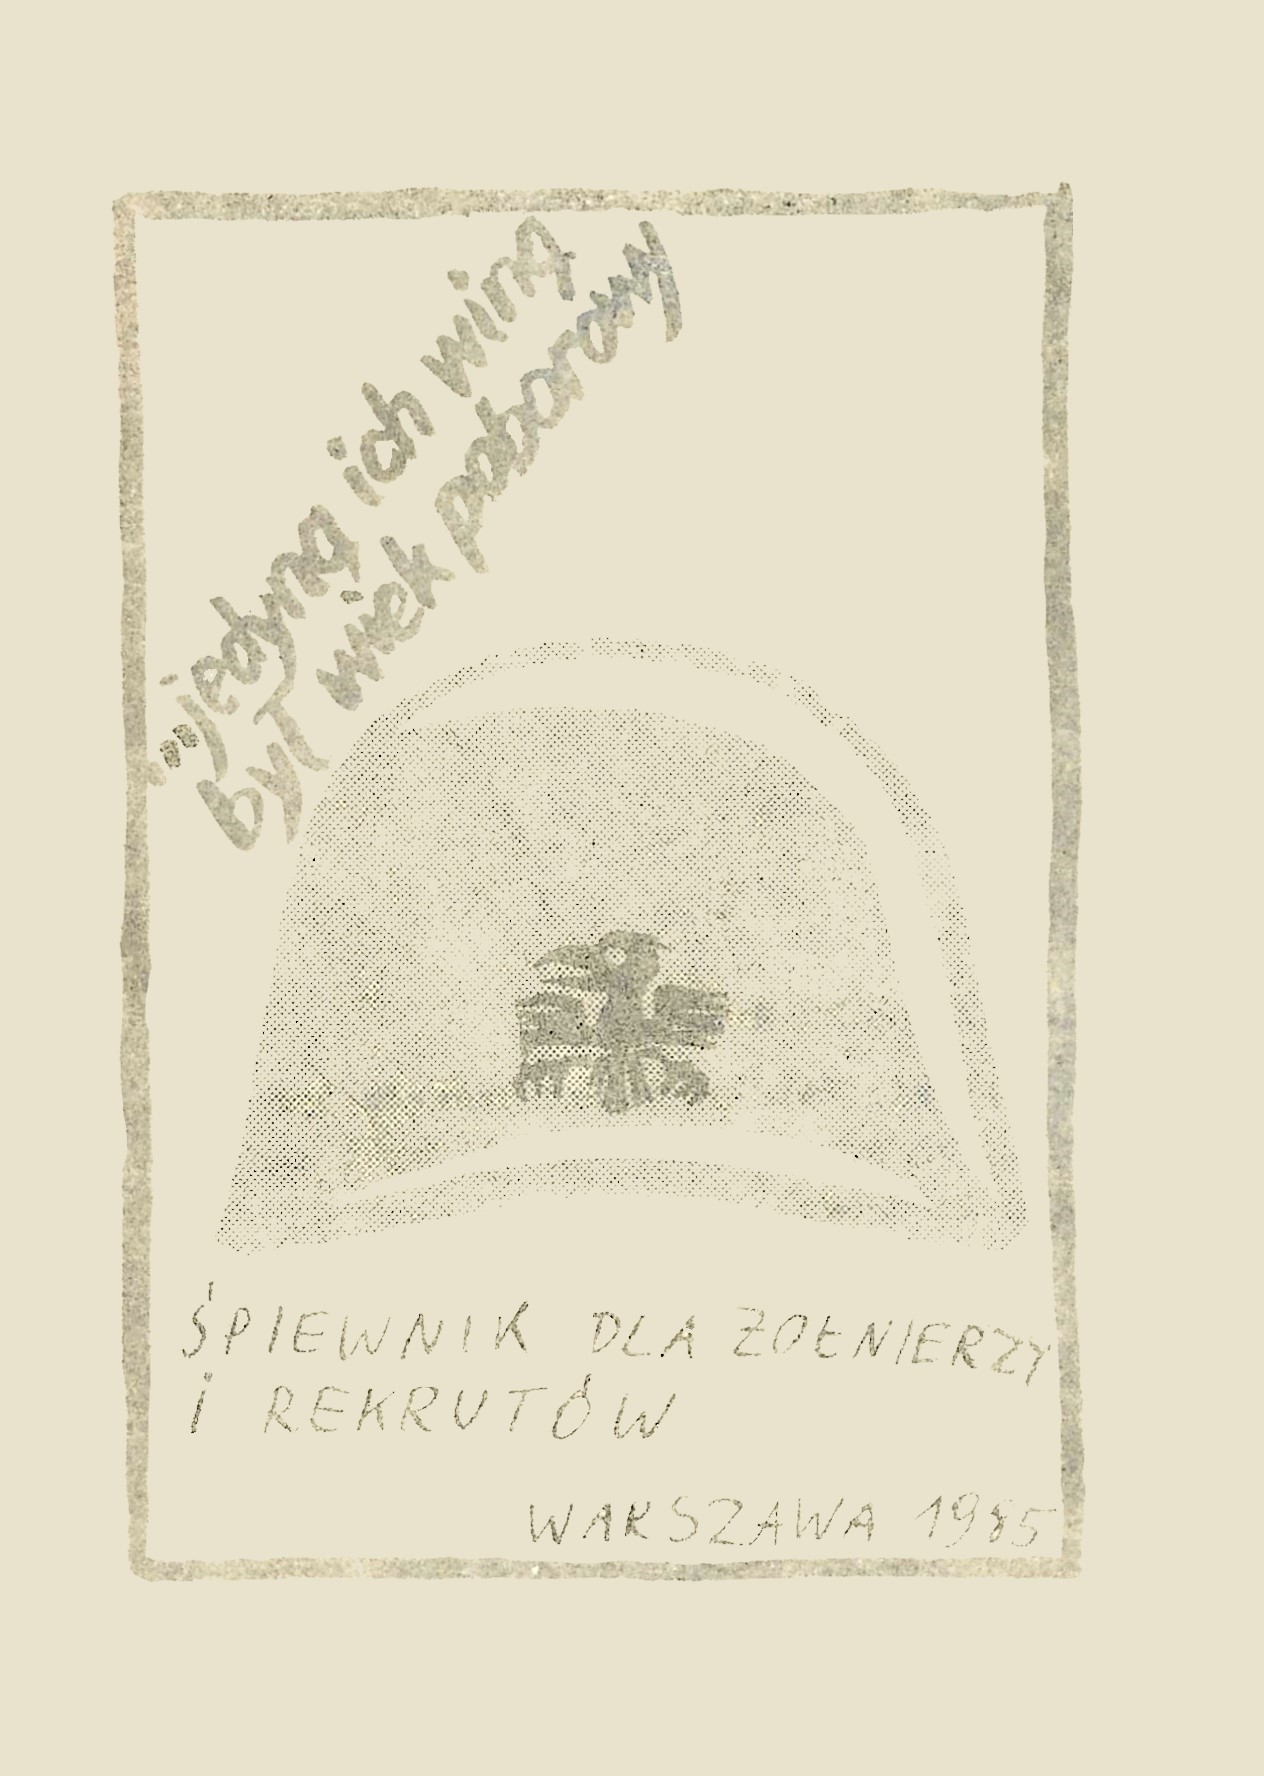 „jedyną ich winą
był wiek poborowy
ŚPIEWNIK DLA ŻOŁNIERZY
I REKRUTÓW
WARSZAWA 1985